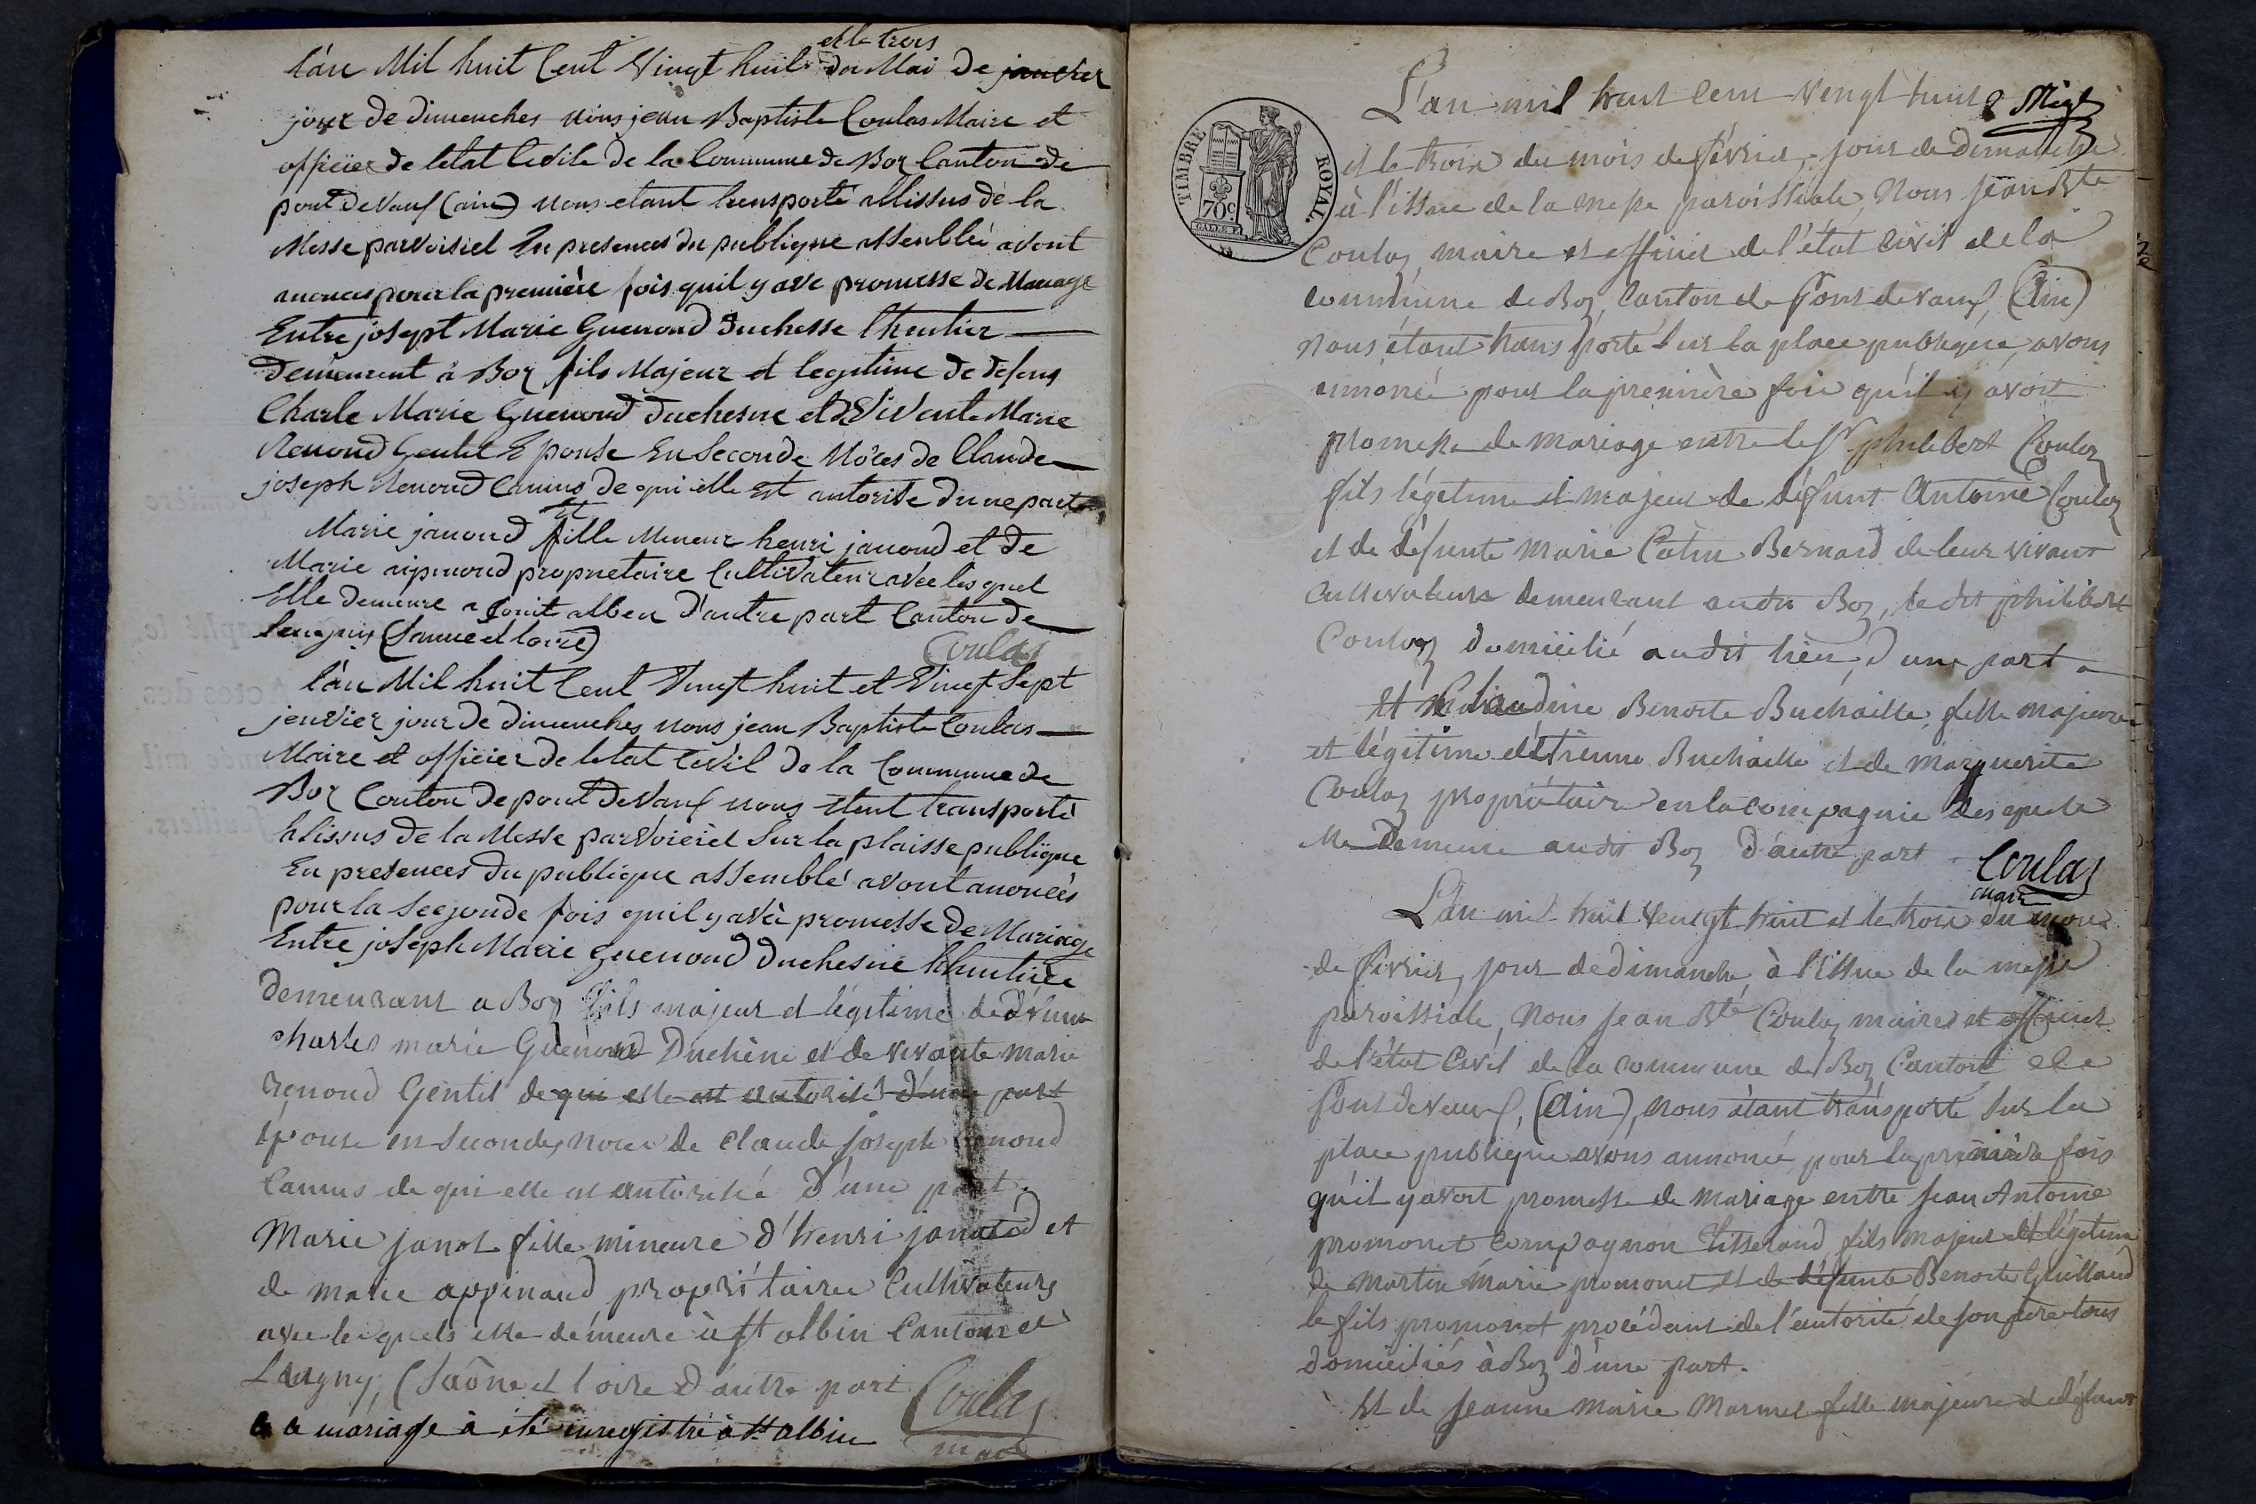 et le trois
L'an Mil huit Cent Vingt huit du Moi de janvier
jour de dimenches nous jean Baptiste Coulas Maire et
officier de letat Civile de la Commune de Boz Canton de
pont de Vaux (ain) nous etant trensporté allissus de la
Messe parvoisiel En presences du publique assemblée avont
anonces pour la première fois quil y ave promesse de Mariage
Entre josept Marie Guenoud Duchesse Cheutier
demeurent à Boz fils Majeur et legitime de defent
Charle Marie Guenoud duchesne et de Vivente Marie
Renoud Gentil Epouse En Seconde Nôces de Claude
joseph Renoud Camus de qui elle est autorise dune part
et
Marie janoud fille Meneur henri janoud et de
Marie apinoud propriétaire Cultivateur avec lesquel
Elle demeure a Saint alben d'autre part Canton de
Lengnis (Saune et loire)
Coulas
L'an Mil huit Cent Vingt huit et Vingt Sept
jenvier jour de dimenches nous jean Baptiste Coulas
Maire et officier de letat Cevil de la Commune de
Boz Conton de pont de Vaux nous etent transporté
alissus de la Messe parvoisiel Sur la plaisse publique
En presences du publique assemblé avont anoncés
pour la Segonde fois quil y avè promesse de Mariage
Entre joseph Marie Guenoud Duchesne
demeurant a Boz fils majeur et légitime de défunt
charles marie Guenoud Duchêne et de vivante marie
renoud Gentil de qui elle est autorisé d'une part
épouse en secondes noces de Claude joseph renoud
Camus de qui elle est autorisée d'une part.
Marie janot fille mineure d'henri janoud et
de marie appinaud propriétaires Cultivateurs
avec lesquels elle demeure à St albin Canton de
Lugny, (Saône et Loire d'autre part
Coulas
maire
Ce mariage à été enregistré à St Albin
TIMBRE ROYAL.
70c
L'an mil huit cent vingt huit
et le trois du mois de février, jour de dimanche
à l'issue de la messe paroissiale, Nous Jean Bte
Couloz, maire et officier de l'état civil de la
commune de Boz, Canton de Pont de vaux, (Ain)
nous étant transporté sur la place publique, avons
annoncé pour la première fois qu'il y avoit
promesse de mariage entre le Sr philibert Couloz
fils légitime et majeur de défunt Antoine Couloz
et de défunte Marie Catin Bernard de leur vivant
Cultivateurs demeurant audit Boz, ledit philibert
Couloz domicilié audit lieu, d'une part
Et Claudine Benoite Buchaille fille majeure
et légitime d'étienne Buchaille et de Marguerite
Couloz propriétaire en la compagnie desquels
elle demeure audit Boz d'autre part.
Coulas
maire
L'an mil huit vingt huit et le trois du mois
de février, jour de dimanche, à l'issue de la messe
paroissiale, Nous Jean Bte Couloz maire et officier
de l'état Civil de la commune de Boz Canton de
Pont de vaux, (Ain), nous étant transporté sur la
place publique avons annoncé pour la première fois
qu'il y avoit promesse de mariage entre Jean Antoine
promonet Compagnon tisserand fils majeur et légitime
de martin marie promonet et de défunte Benoite Guillaud
le fils promonet procédant de l'autorité de son père tous
domiciliés à Boz d'une part.
Et de Jeanne Marie Marmet fille majeure de défunt